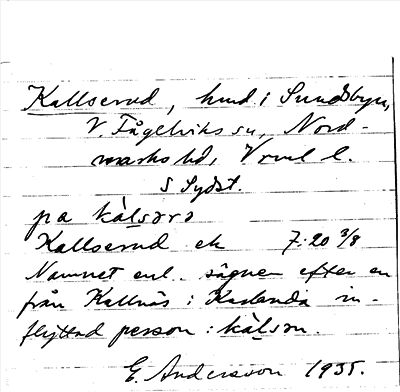 Kallserud, hmd i Sundsbyn,
V. Fågelviks sn, Nord-
marks hd, Vrml l.
S Sydst.
pa kàlsərə
Kallserud ek 7:20 3/8
Namnet enl. sägnen efter en
från Kallnäs i Karlanda in-
flyttad person: kàlsən.
E. Andersson 1935.